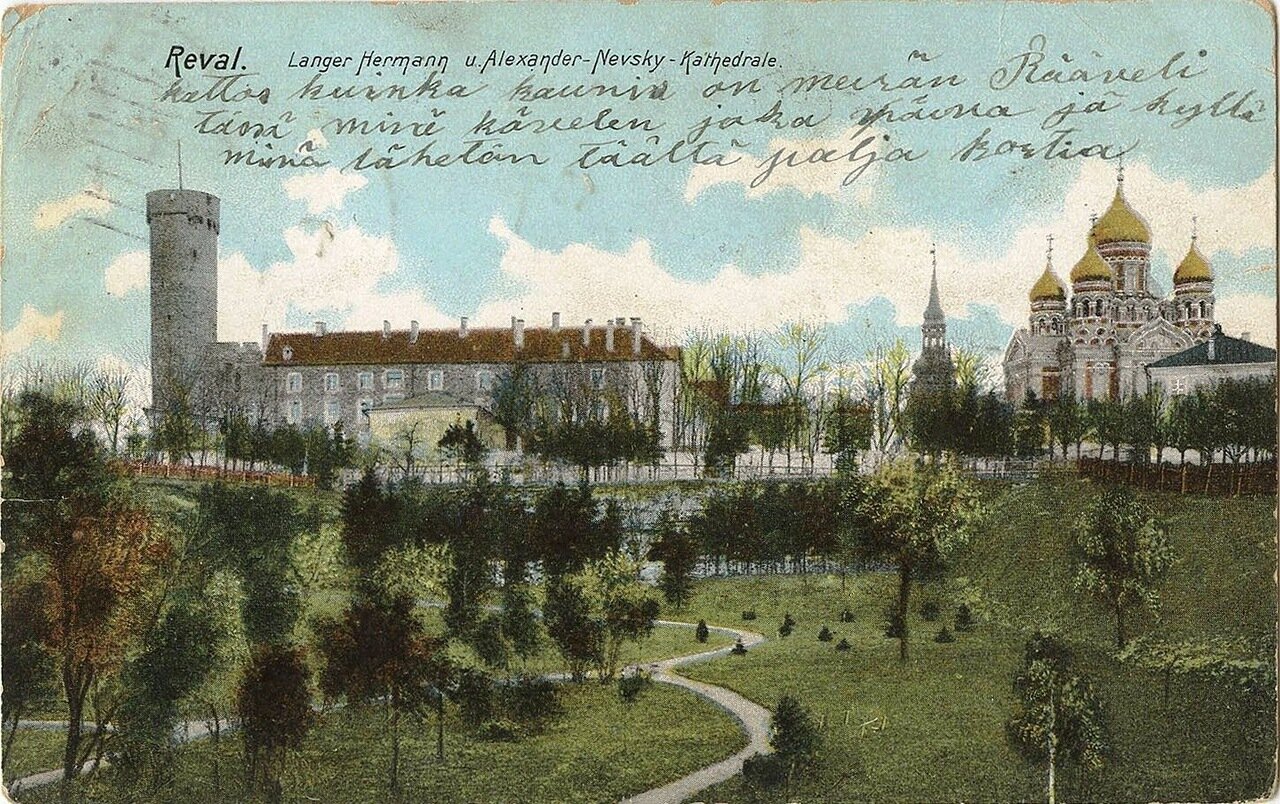 Reval. Langer Hermann u. Alexander-Nevsky-Kathedrale.
kattos kuinka kaunis on meirän Rääveli
tässä minä kävelen joka päivä ja kyllä
minä lähetän täältä palja kostia